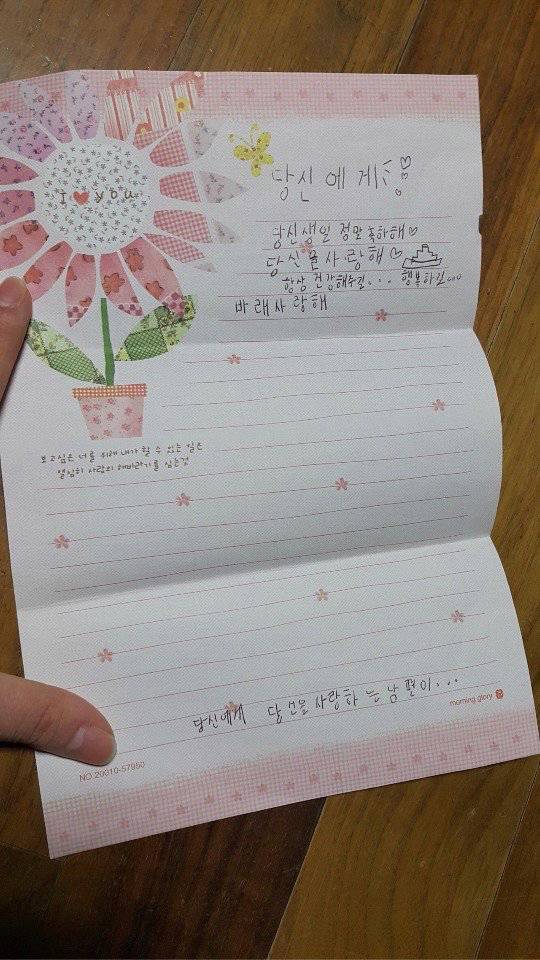 I ♥ you
당신에게
당신생일 정말축하해♡
당신을사랑해♡
항상 건강해주길... 행복하길...
바래사랑해
보고싶은 너를 위해 내가 할 수 있는 일은
열심히 사랑의 해바라기를 심는것
당신에게 당신을사랑하는남편이...
morning glory
NO.20310-57950